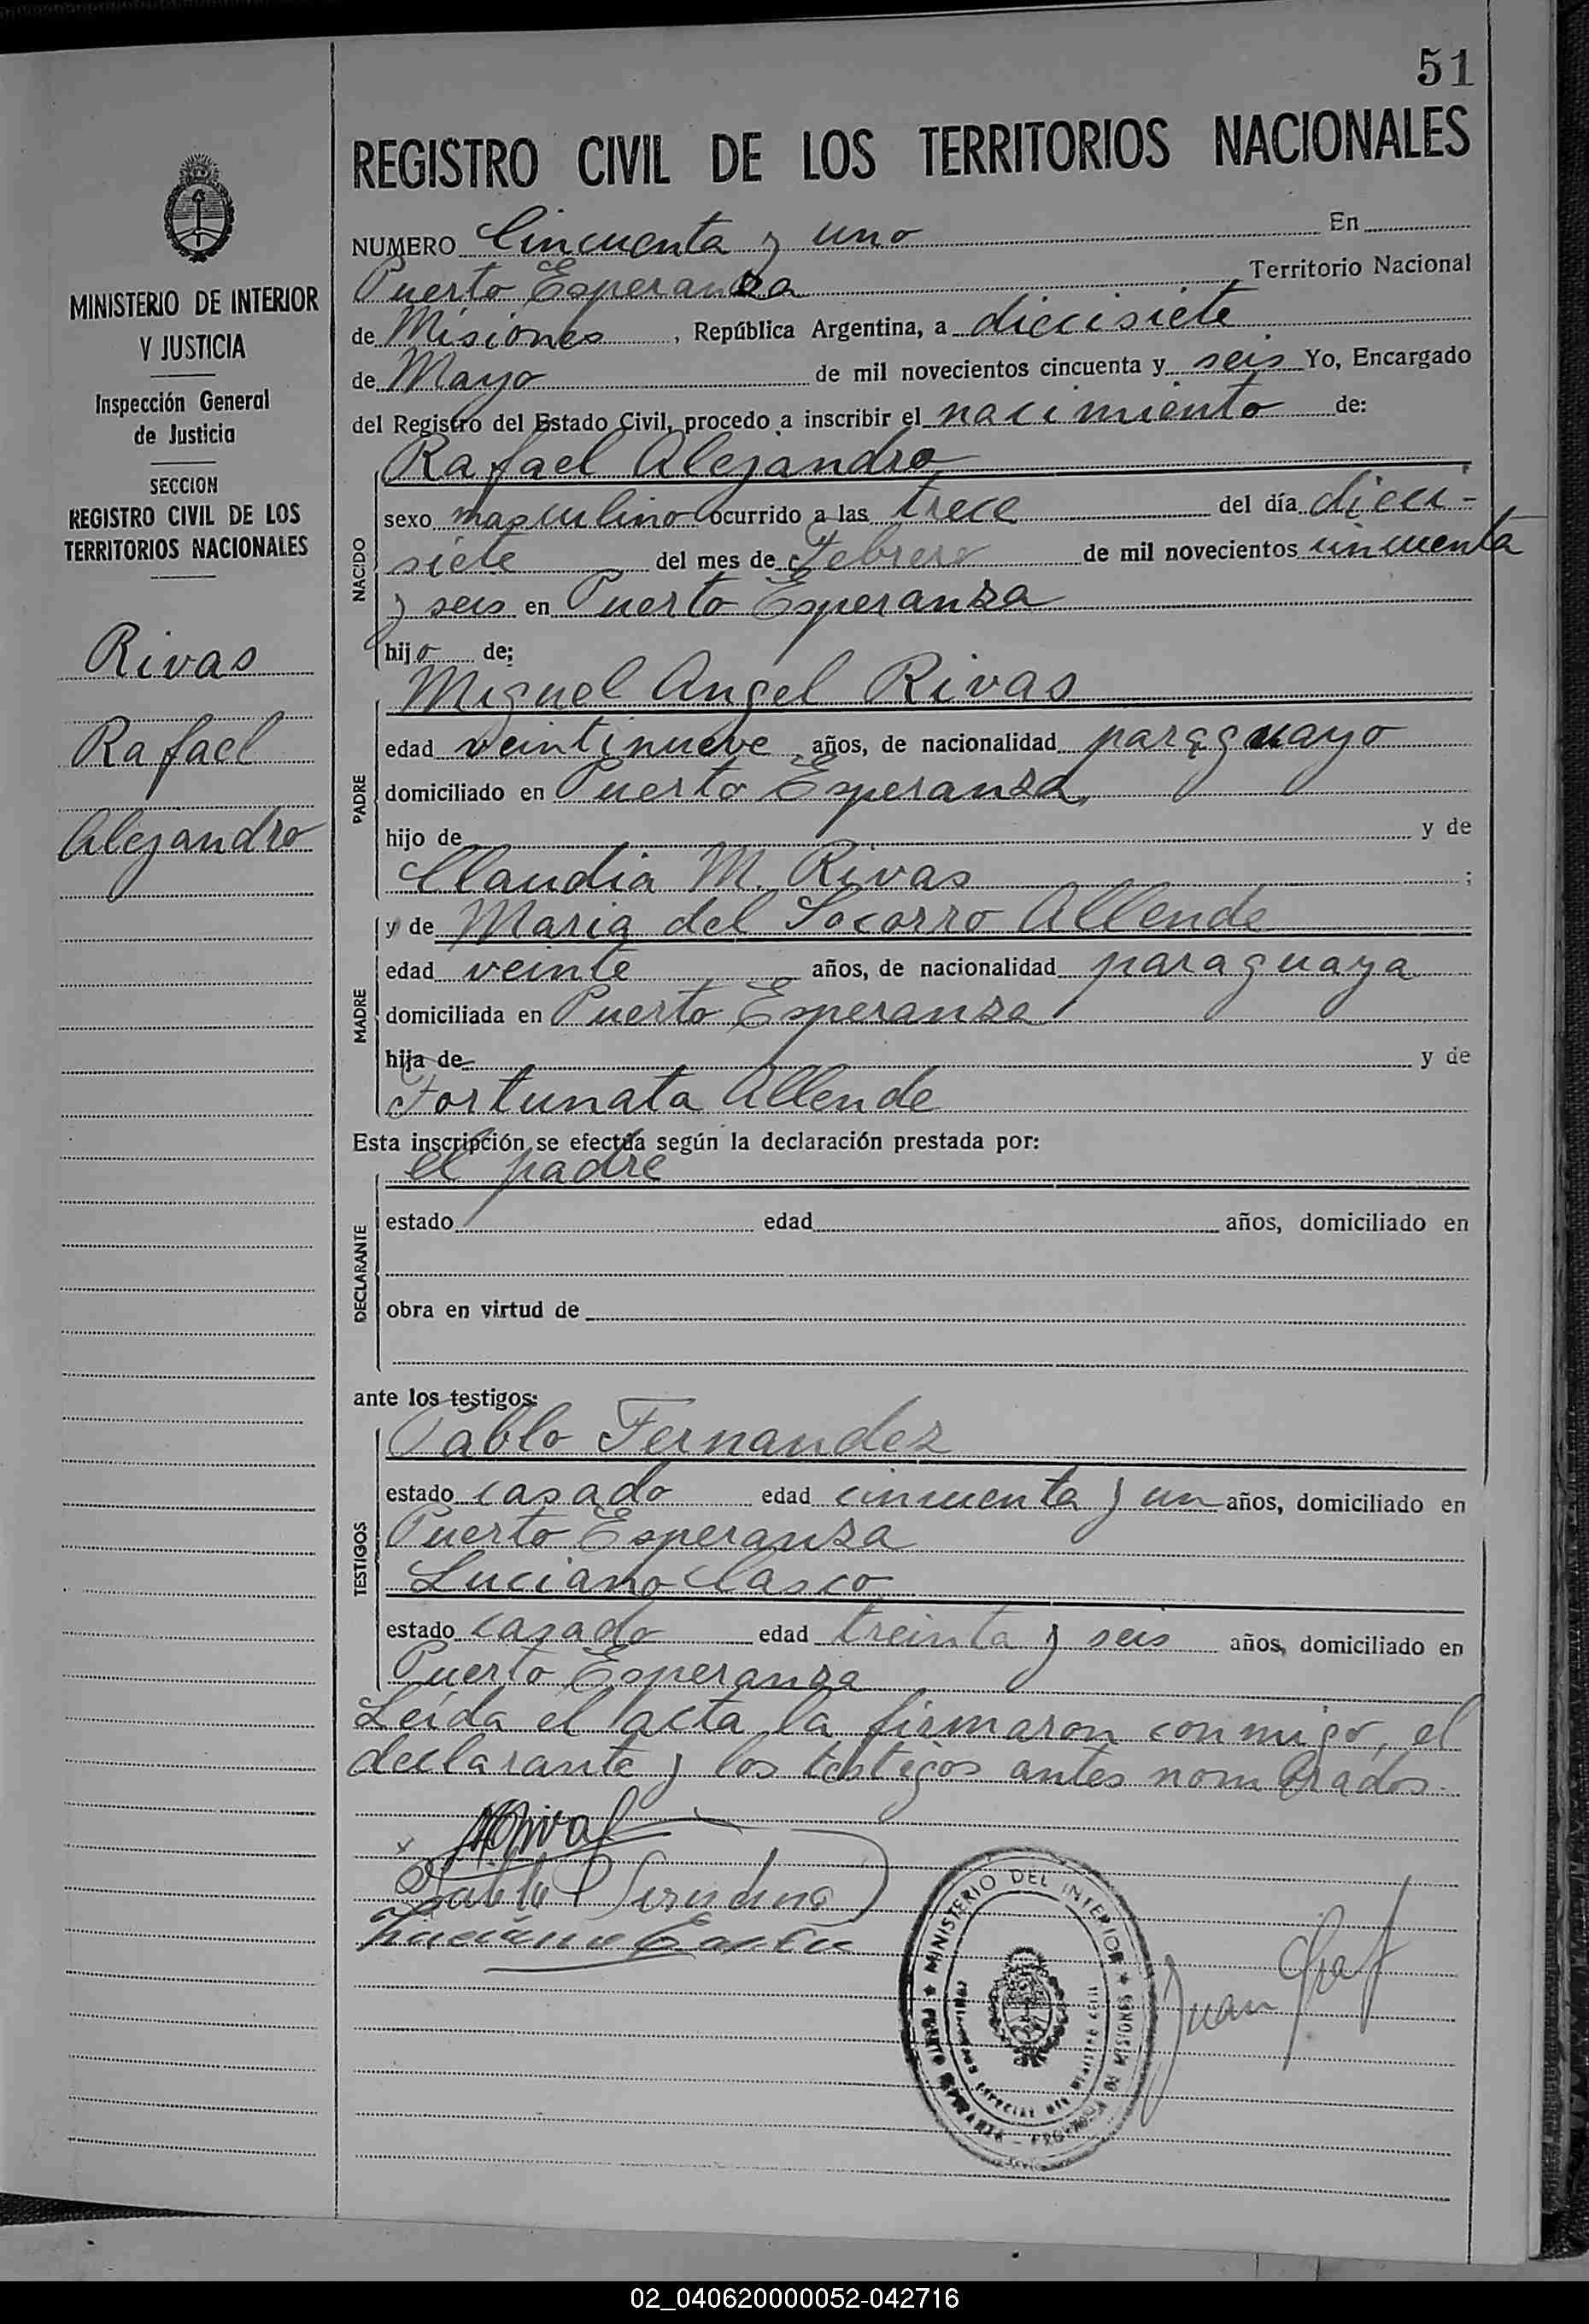 51
REGISTRO CIVIL DE LOS TERRITORIOS NACIONALES
MINISTERIO DE INTERIOR
Y JUSTICIA
Inspección General
de Justicia
SECCION
REGISTRO CIVIL DE LOS
TERRITORIOS NACIONALES
Rivas
Rafael
Alejandro
NUMERO Cincuenta y uno En
Puerto Esperanza Territorio Nacional
de Misiones, República Argentina, a diecisiete
de Mayo de mil novecientos cincuenta y seis Yo, Encargado
del Registro del Estado Civil, procedo a inscribir el nacimiento de:
NACIDO
Rafael Alejandro
sexo masculino ocurrido a las trece del día dieci-
siete del mes de Febrero de mil novecientos cincuenta
y seis en Puerto Esperanza
hijo de:
PADRE
Miguel Angel Rivas
edad veintinueve años, de nacionalidad paraguayo
domiciliado en Puerto Esperanza,
hijo de y de
Claudia M. Rivas ;
MADRE
y de Maria del Socorro Allende
edad veinte años, de nacionalidad paraguaya
domiciliada en Puerto Esperanza
hija de y de
Fortunata Allende
Esta inscripción se efectúa según la declaración prestada por:
DECLARANTE
el padre
estado edad años, domiciliado en
obra en virtud de
ante los testigos:
TESTIGOS
Pablo Fernandez
estado casado edad cincuenta y un años, domiciliado en
Puerto Esperanza
Luciano Casco
estado casado edad treinta y seis años, domiciliado en
Puerto Esperanza
Leída el acta la firmaron conmigo, el
declarante y los testigos antes nombrados.
MARivas
Pablo Fernandez
Luciano Casco
MINISTERIO DEL INTERIOR
PUERTO ESPERANZA - PROVINCIA DE MISIONES
Juan Graf
02_040620000052-042716